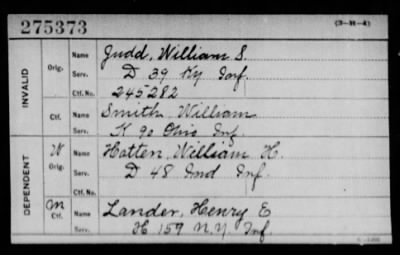 275373 (3-H-4)
INVALID
Orig. Name Judd, William S.
Serv. D 39 Ky Inf.
Ctf. No. 245282
Ctf. Name Smith William
Serv. K 90 Ohio Inf
DEPENDENT
W Orig. Name Hatten, William H.
Serv. D 48 Ind Inf.
Ctf. No.
M Ctf. Name Lander, Henry E
Serv. H 159 N.Y. Inf